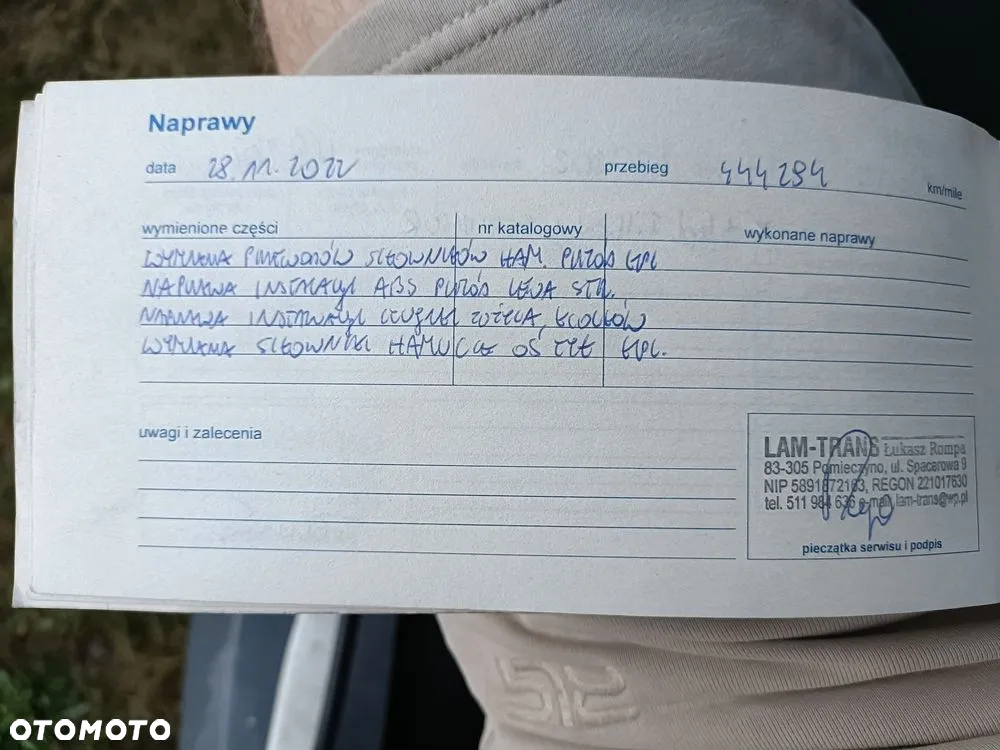 Naprawy
data 28.11.2022 przebieg 444294 km/mile
wymienione części nr katalogowy wykonane naprawy
WYMIANA PRZEWODÓW SIŁOWNIKÓW HAM. PRZÓD KPL
NAPRAWA INSTALACJI ABS PRZÓD LEWA STR.
NAPRAWA INSTALACJI CZUJNIKI ZUŻYCIA KLOCKÓW
WYMIANA SIŁOWNIKI HAMUCCE OŚ TYŁ KPL.
uwagi i zalecenia
LAM-TRANS Łukasz Rompa
83-305 Pomieczyno, ul. Spacerowa 9
NIP 5891872163, REGON 221017630
tel. 511 984 636 e-mail lam-trans@wp.pl
pieczątka serwisu i podpis
OTOMOTO